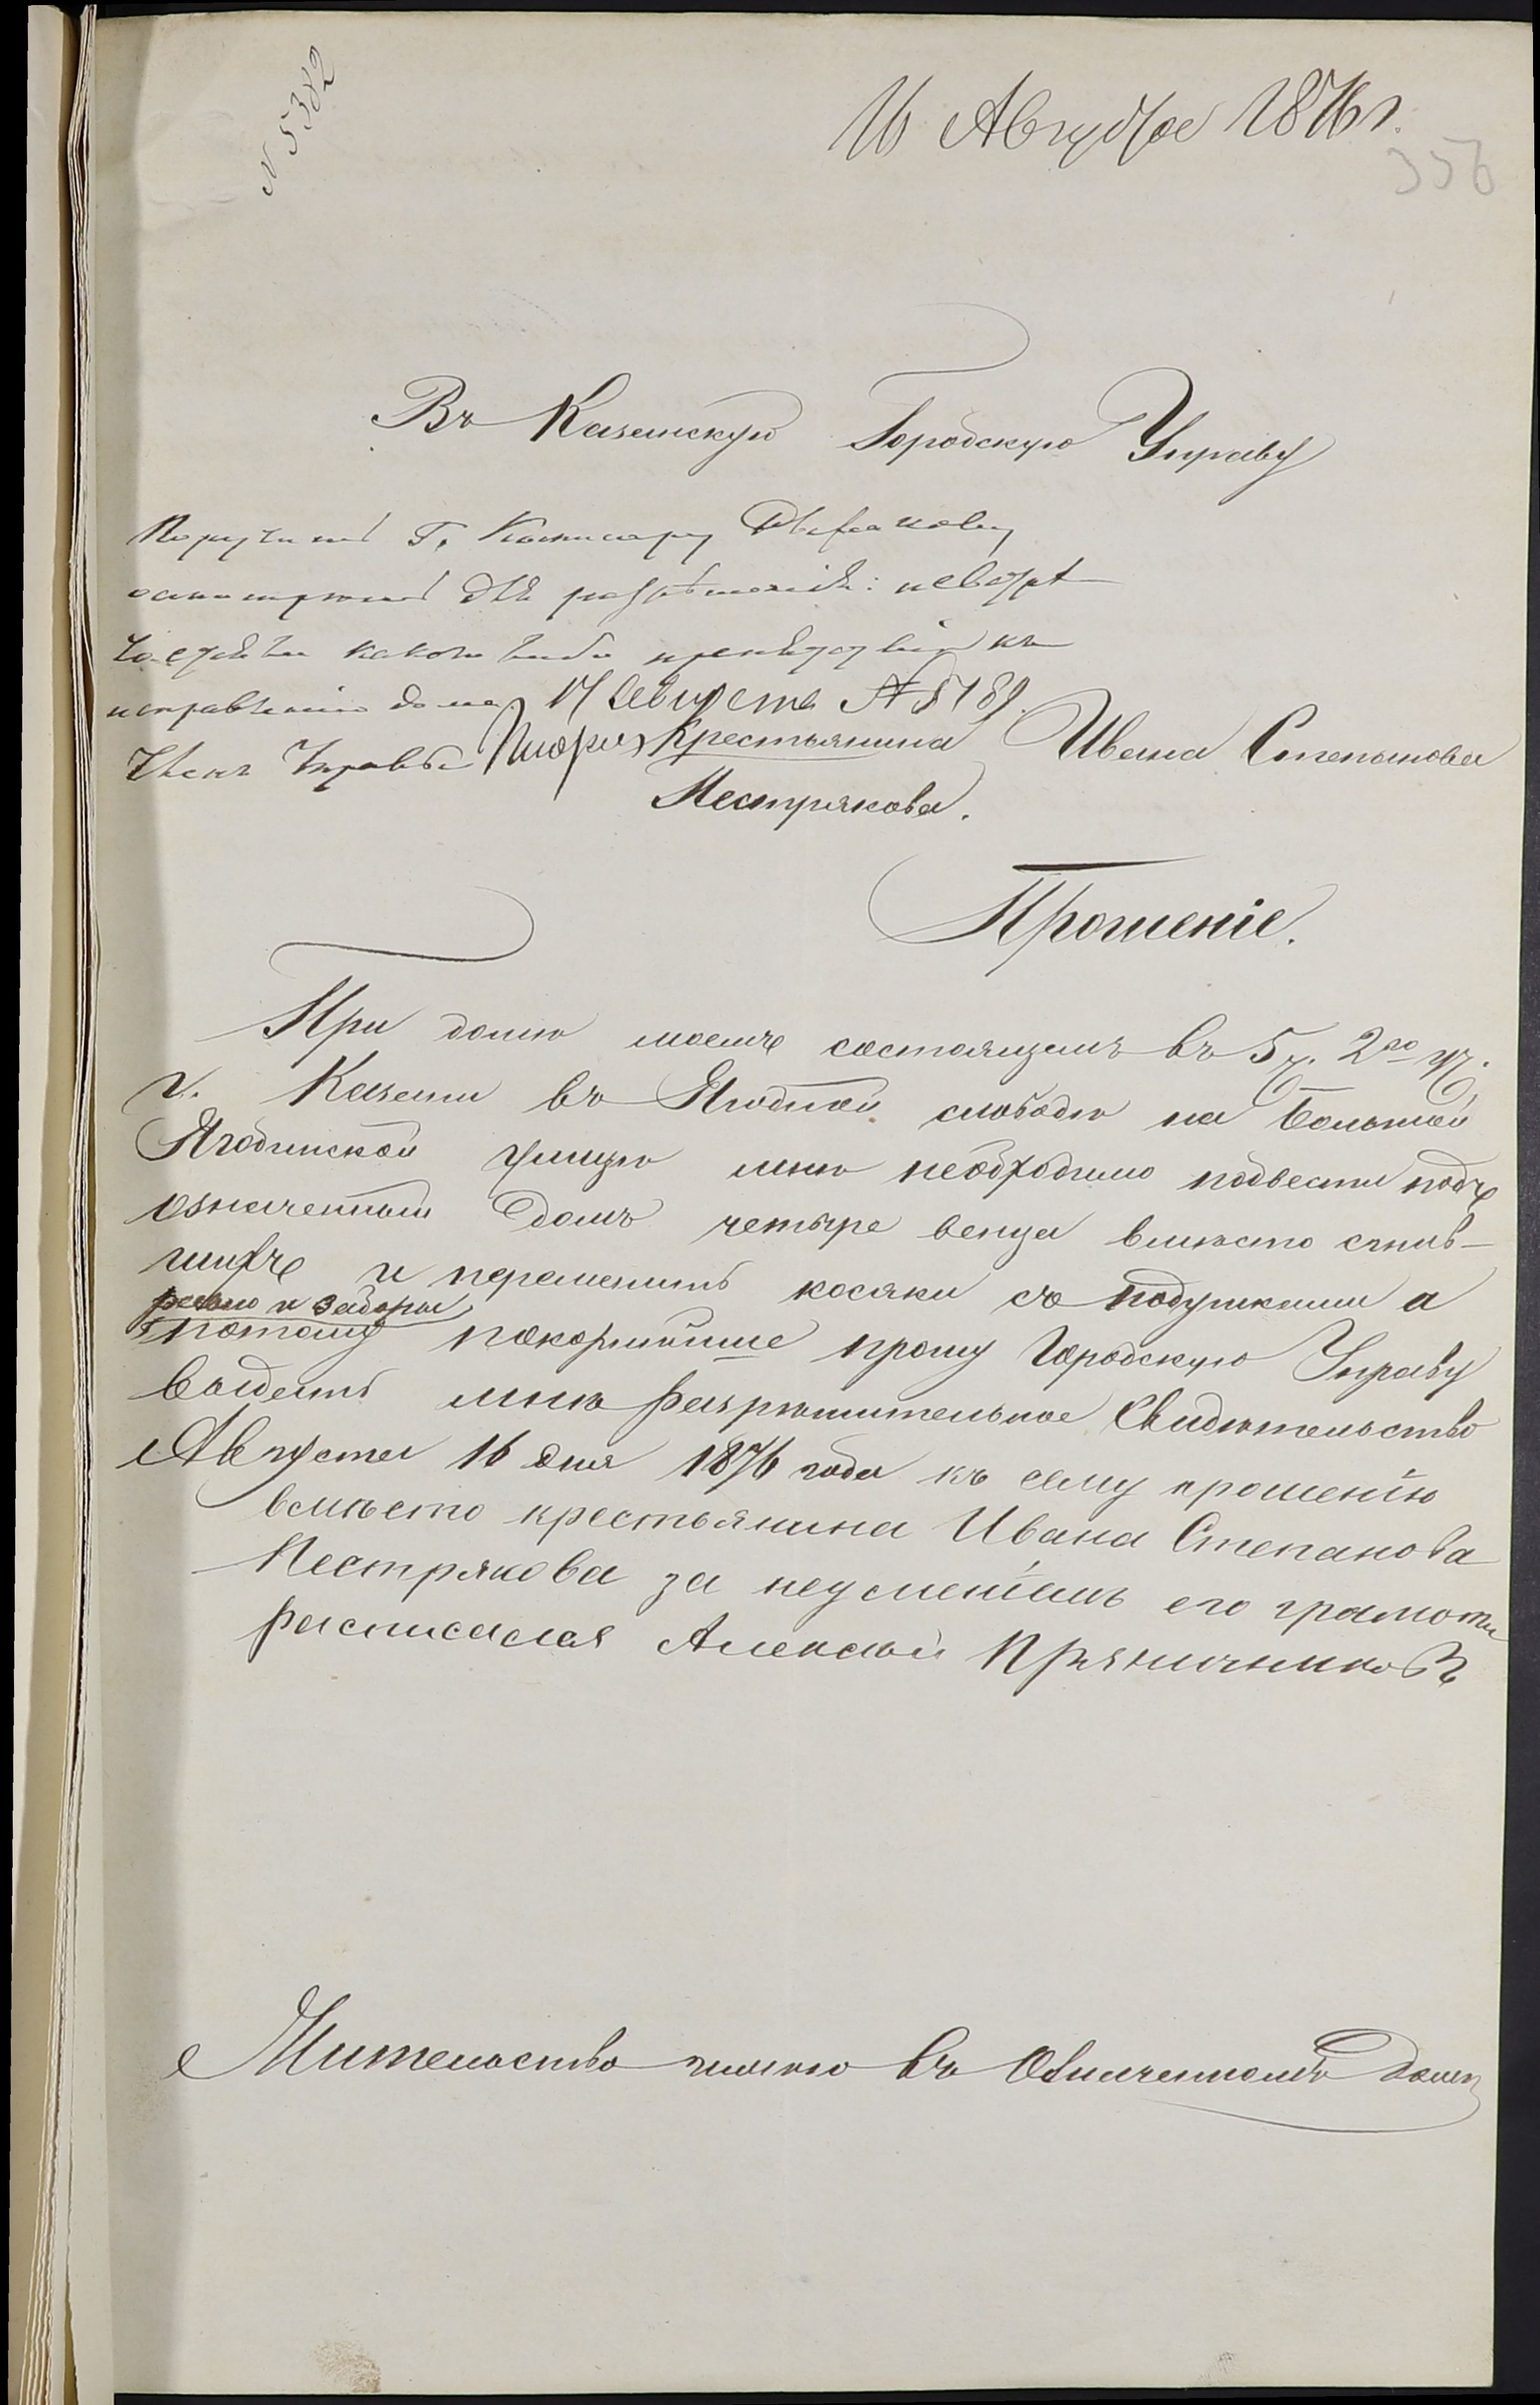 N 5382
16 Августа 1876 г.
356
Въ Казанскую Городскую Управу
Поручить Г. Комисару
осмотреть для разрѣшенія: невстрѣ
исправленію дома 17 Августа № 5189.
Членъ Управы
Крестьянина Ивана Степанова
Пестрякова.
Прошеніе.
При домѣ моемъ состоящемъ въ 5 ч. 2го уч.
г. Казани въ Ягодной слободѣ на Большой
Ягодинской улицѣ мнѣ необходимо подвести подъ
означенный домъ четыре венца вмѣсто сгнив-
шихъ и переменить косяки съ подушками а
и заборы
потому покорнѣйше прошу Городскую Управу
выдать мнѣ разрѣшительное Свидѣтельство
Августа 16 дня 1876 года къ сему прошенію
вмѣсто крестьянина Ивана Степанова
Пестрякова за неуменіемъ его грамоты
расписался Алексѣй Пряничниковъ
Жительство имѣю въ Означенномъ доме